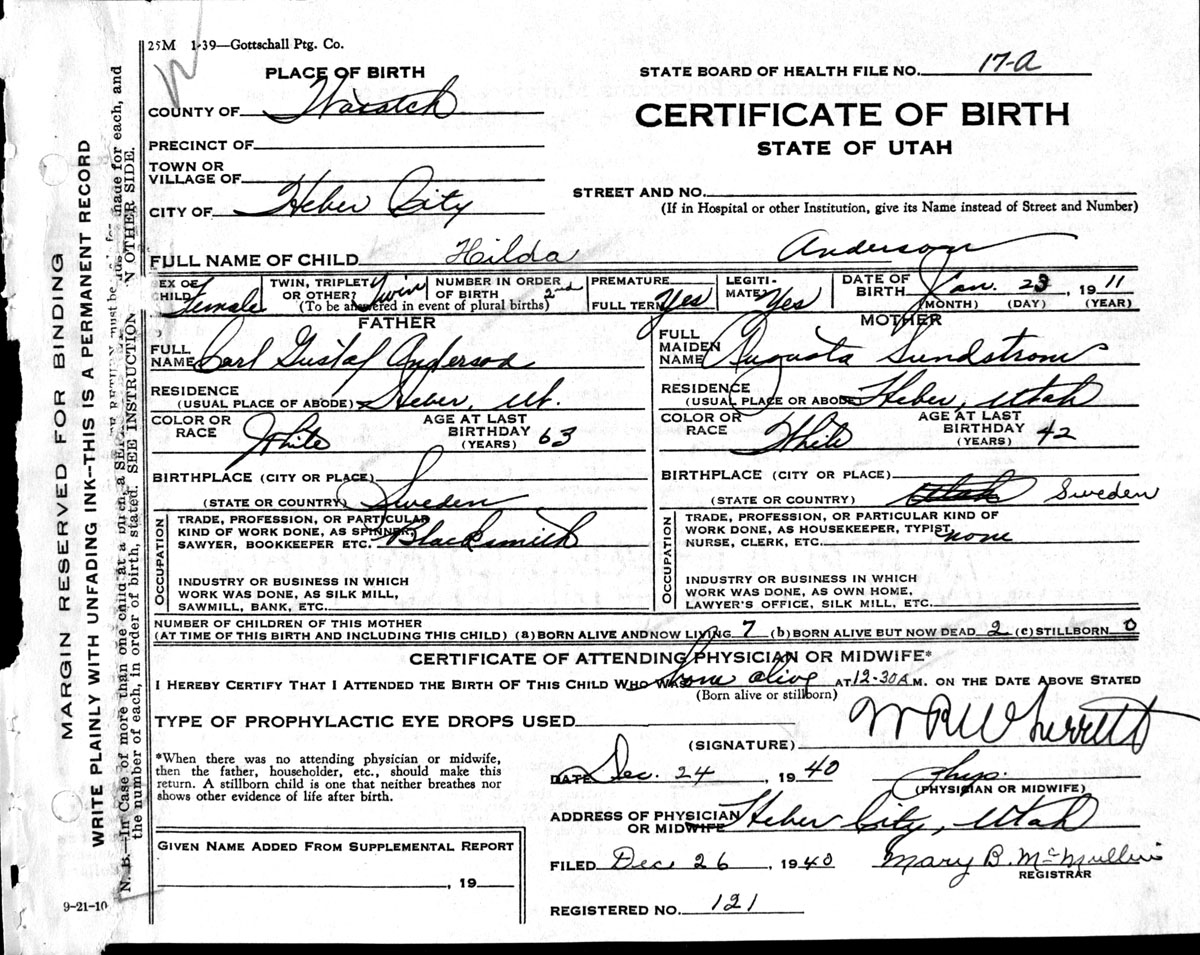 25M 1-39—Gottschall Ptg. Co.
PLACE OF BIRTH
COUNTY OF Wasatch
PRECINCT OF
TOWN OR VILLAGE OF
CITY OF Heber City
STATE BOARD OF HEALTH FILE NO. 17-A
CERTIFICATE OF BIRTH
STATE OF UTAH
STREET AND NO.
(If in Hospital or other Institution, give its Name instead of Street and Number)
FULL NAME OF CHILD Hilda Anderson
SEX OF CHILD Female
TWIN, TRIPLET OR OTHER? Twin
NUMBER IN ORDER OF BIRTH 2nd
(To be answered in event of plural births)
PREMATURE
FULL TERM Yes
LEGITI- MATE? Yes
DATE OF BIRTH Jan. 23, 1911
(MONTH) (DAY) (YEAR)
FATHER
FULL NAME Carl Gustaf Anderson
RESIDENCE
(USUAL PLACE OF ABODE) Heber, Ut.
COLOR OR RACE White
AGE AT LAST BIRTHDAY (YEARS) 63
BIRTHPLACE (CITY OR PLACE)
(STATE OR COUNTRY) Sweden
OCCUPATION
TRADE, PROFESSION, OR PARTICULAR
KIND OF WORK DONE, AS SPINNER,
SAWYER, BOOKKEEPER ETC. Blacksmith
INDUSTRY OR BUSINESS IN WHICH
WORK WAS DONE, AS SILK MILL,
SAWMILL, BANK, ETC.
MOTHER
FULL MAIDEN NAME Augusta Sundstrom
RESIDENCE
(USUAL PLACE OR ABODE Heber, Utah
COLOR OR RACE White
AGE AT LAST BIRTHDAY (YEARS) 42
BIRTHPLACE (CITY OR PLACE)
(STATE OR COUNTRY) Utah Sweden
OCCUPATION
TRADE, PROFESSION, OR PARTICULAR KIND OF
WORK DONE, AS HOUSEKEEPER, TYPIST,
NURSE, CLERK, ETC. none
INDUSTRY OR BUSINESS IN WHICH
WORK WAS DONE, AS OWN HOME,
LAWYER'S OFFICE, SILK MILL, ETC.
NUMBER OF CHILDREN OF THIS MOTHER
(AT TIME OF THIS BIRTH AND INCLUDING THIS CHILD) (a) BORN ALIVE AND NOW LIVING 7 (b) BORN ALIVE BUT NOW DEAD 2 (c) STILLBORN 0
CERTIFICATE OF ATTENDING PHYSICIAN OR MIDWIFE*
I HEREBY CERTIFY THAT I ATTENDED THE BIRTH OF THIS CHILD WHO WAS born alive AT 12-30 A M. ON THE DATE ABOVE STATED
(Born alive or stillborn)
TYPE OF PROPHYLACTIC EYE DROPS USED
*When there was no attending physician or midwife,
then the father, householder, etc., should make this
return. A stillborn child is one that neither breathes nor
shows other evidence of life after birth.
(SIGNATURE) W R Wherritt
DATE Dec. 24, 1940 Phys.
(PHYSICIAN OR MIDWIFE)
ADDRESS OF PHYSICIAN OR MIDWIFE Heber City, Utah
GIVEN NAME ADDED FROM SUPPLEMENTAL REPORT
, 19
FILED Dec 26, 1940 Mary B. McMullin
REGISTRAR
REGISTERED NO. 121
MARGIN RESERVED FOR BINDING
WRITE PLAINLY WITH UNFADING INK--THIS IS A PERMANENT RECORD
N. B.—In Case of more than one child at a birth, a SEPARATE RETURN must be made for each, and
the number of each, in order of birth, stated. SEE INSTRUCTION ON OTHER SIDE.
9-21-10